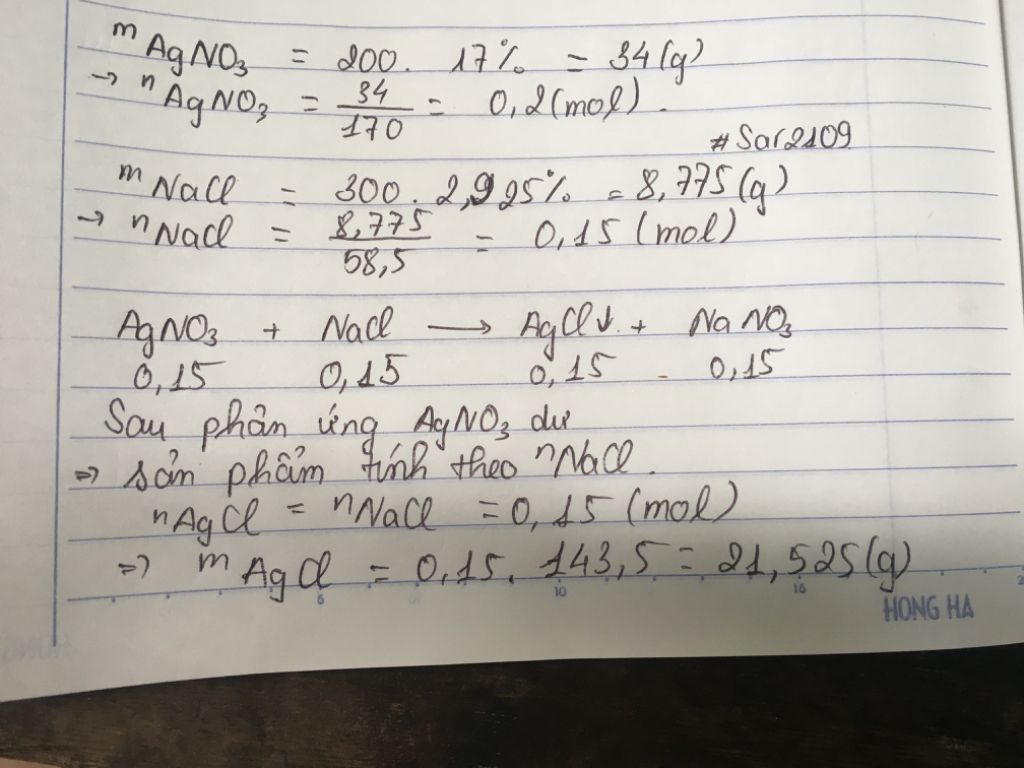 mAgNO3 = 200. 17% = 34(g)
→ nAgNO3 = 34/170 = 0,2(mol).
#Sar2109
mNaCl = 300. 2,925% = 8,775(g)
→ nNaCl = 8,775/58,5 = 0,15 (mol)
AgNO3 + NaCl → AgCl↓ + NaNO3
0,15 0,15 0,15 0,15
Sau phản ứng AgNO3 dư
=> sản phẩm tính theo nNaCl.
nAgCl = nNaCl = 0,15 (mol)
=> mAgCl = 0,15. 143,5 = 21,525(g)
6 10 16
HONG HA